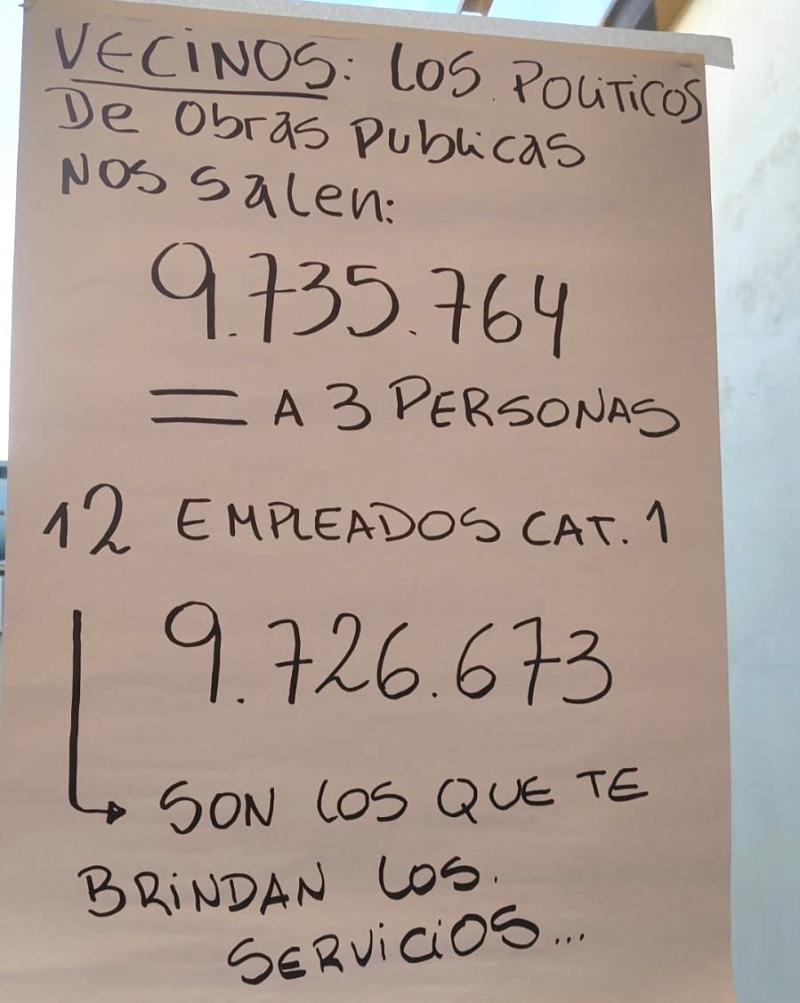 VECINOS: LOS POLITICOS
De Obras Publicas
NOS salen:
9.735.764
= A 3 PERSONAS
12 EMPLEADOS CAT. 1
9.726.673
→ SON LOS QUE TE
BRINDAN LOS.
SERVICIOS...